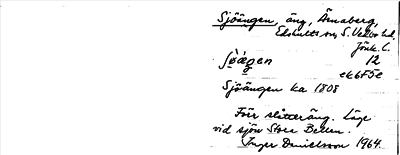 Sjöängen, äng, Ärnaberg,
Edshults sn, S. Vedbo hd,
Jönk. l.
12
ek6F5e
Sjöängen ka 1808
Förr slåtteräng. Läge
vid sjön Stora Bellen.
Inger Danielsson 1964.